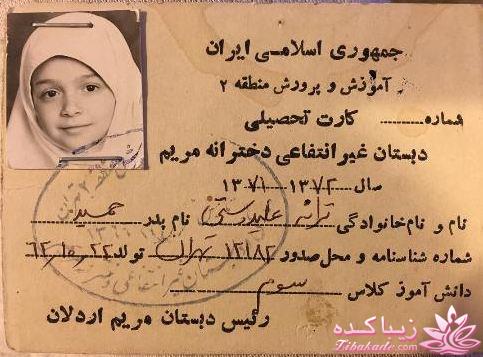 جمهوری اسلامی ایران
آموزش و پرورش منطقه ۲
شماره........ کارت تحصیلی
دبستان غیر انتفاعی دخترانه مریم
سال ۱۳۷۲....۱۳۷۱
نام و نام‌خانوادگی ترانه علیدوستی نام پدر حمید
شماره شناسنامه و محل صدور ۱۲۱۸۲ تهران تولد ۶۲/۱۰/۲۲
دانش آموز کلاس سوم
رئیس دبستان مریم اردلان
زیباکده
Zibakade.com